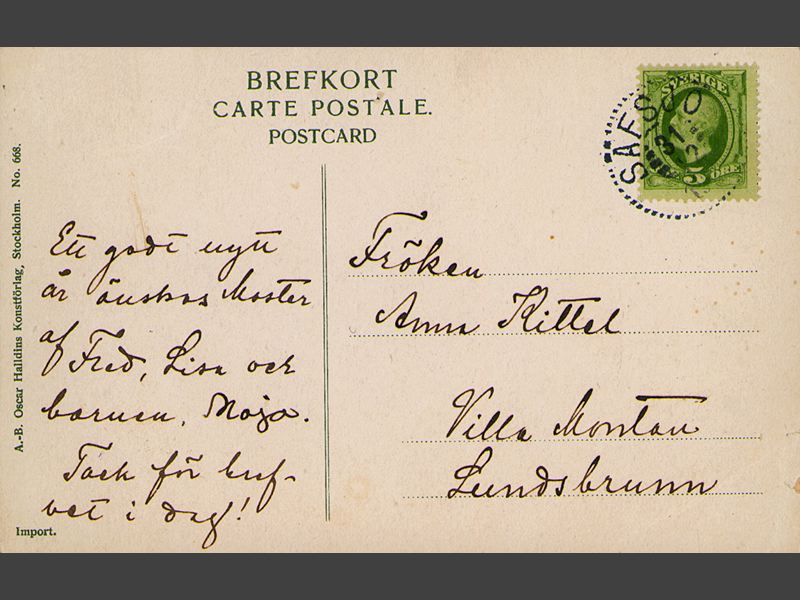 BREFKORT
CARTE POSTALE.
POSTCARD
SVERIGE
5 ÖRE
SÄFSJÖ
31
Ett godt nytt
år önskas Moster
af Fred, Lisa och
barnen, Maja.
Tack för bref-
vet i dag!
Fröken
Anna Kittel
Villa Montan
Lundsbrunn
A.-B. Oscar Halldins Konstförlag, Stockholm. No. 668.
Import.